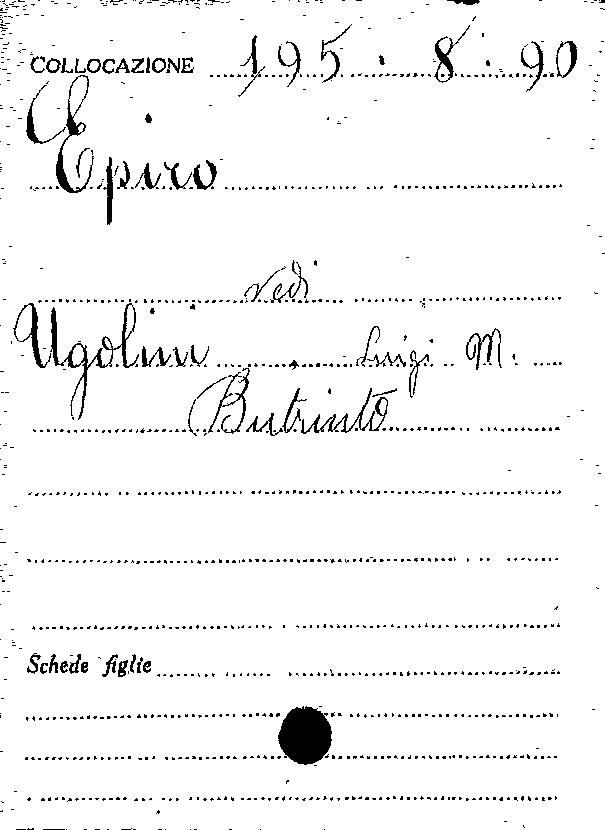 COLLOCAZIONE 195.8.90
Epiro
vedi
Ugolini, Luigi M.
Butrinto
Schede figlie